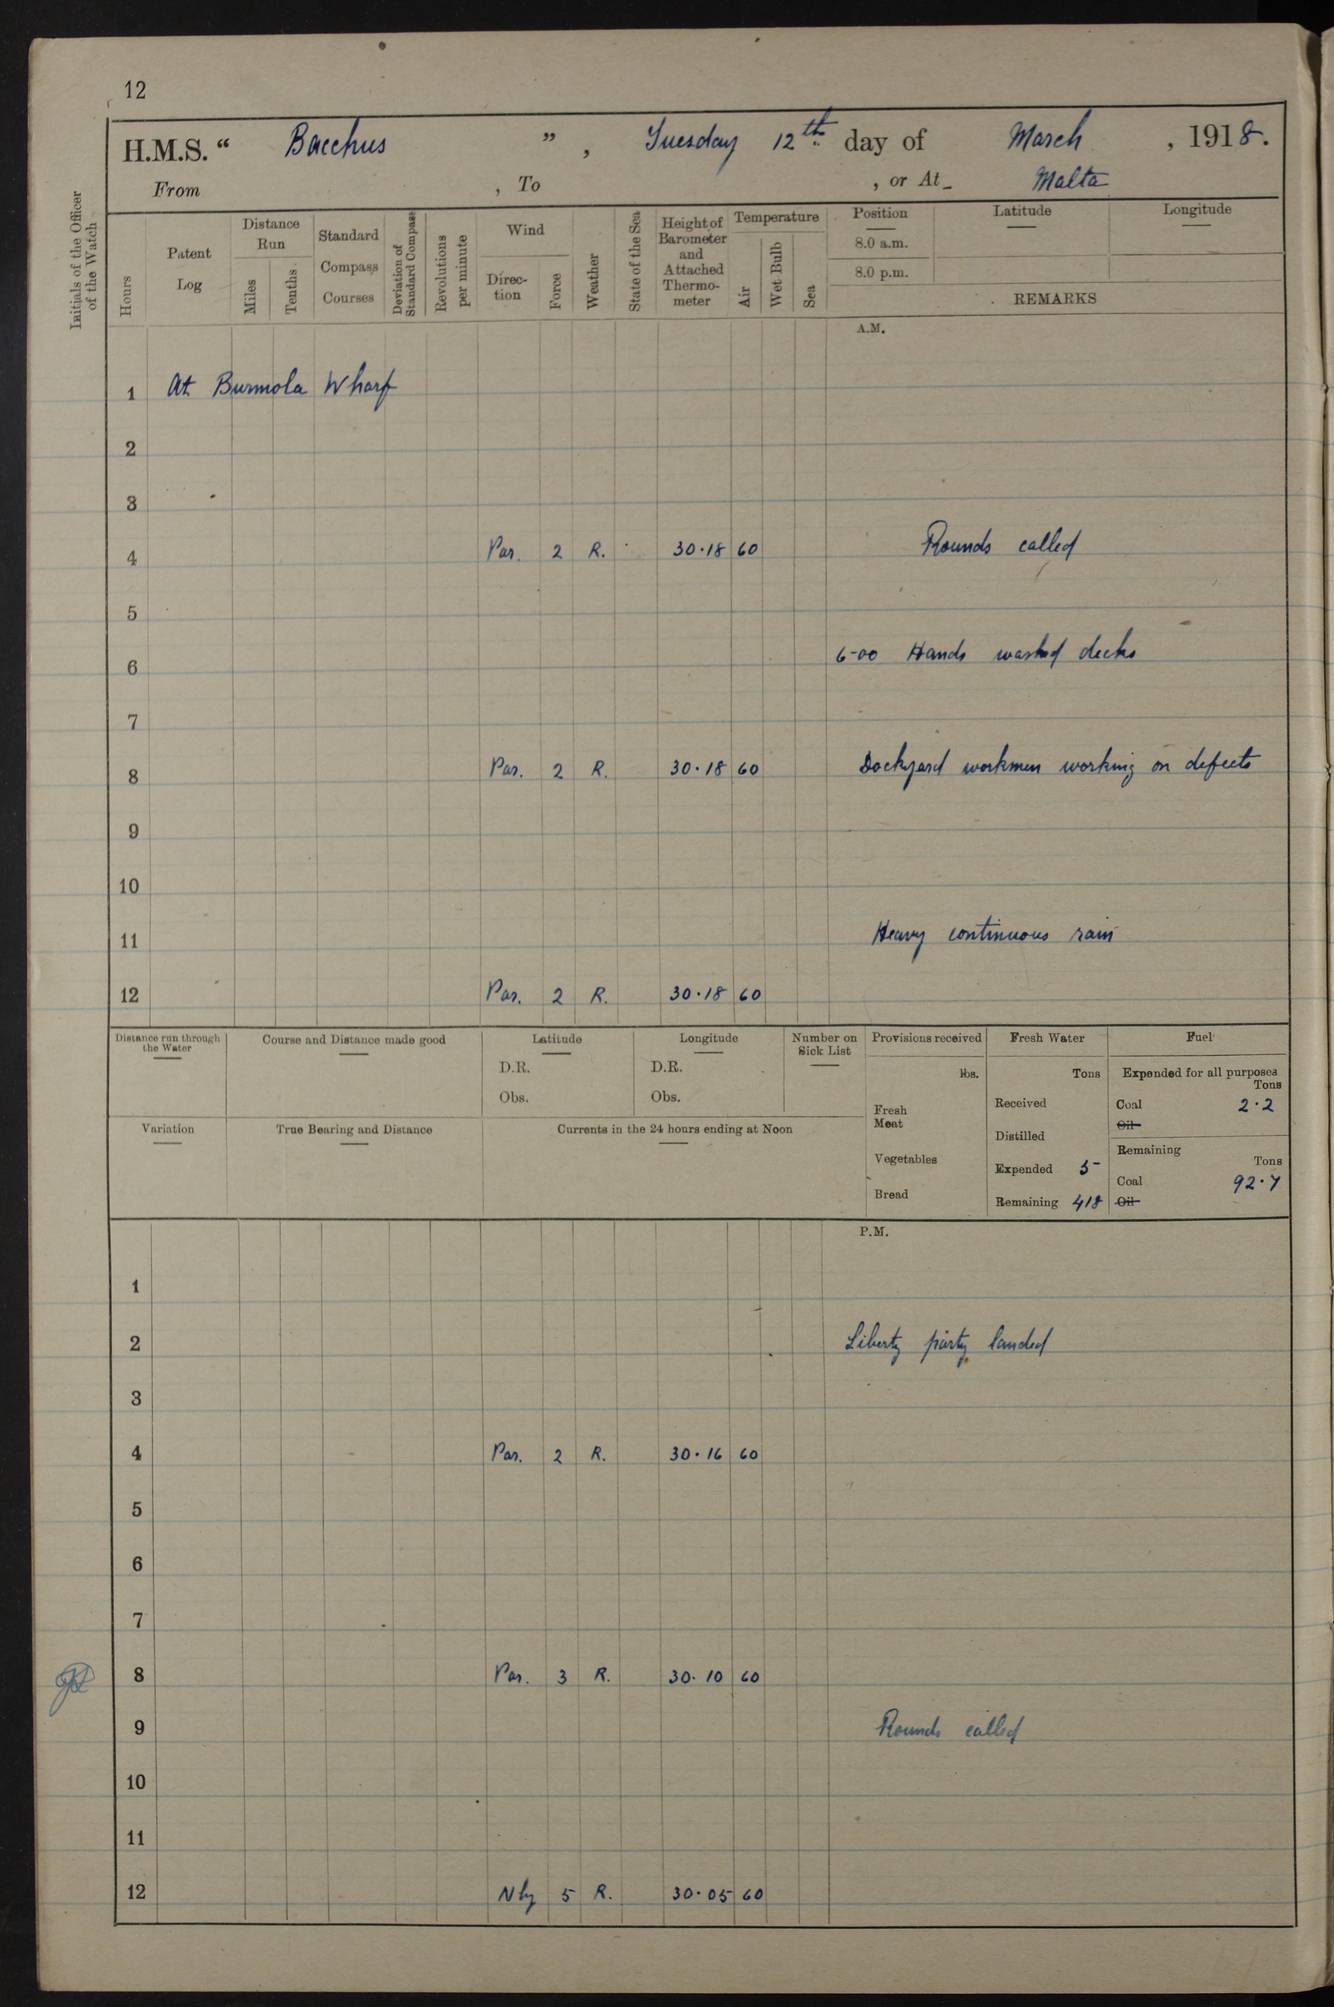 12
H.M.S. “ Bacchus ” , Tuesday 12th day of March , 1918.
From , To , or At Malta
Initials of the Officer of the Watch
Hours
Patent Log
Distance Run
Miles
Tenths
Standard Compass Courses
Deviation of Standard Compass
Revolutions per minute
Wind
Direc-tion
Force
Weather
State of the Sea
Height of Barometer and Attached Thermo-meter
Temperature
Air
Wet Bulb
Sea
Position Latitude Longitude
8.0 a.m.
8.0 p.m.
REMARKS
A.M.
1 At Burmola Wharf
2
3
4 Par. 2 R. 30.18 60 Rounds called
5
6 6-00 Hands washed decks
7
8 Par. 2 R. 30.18 60 Dockyard workmen working on defects
9
10
11 Heavy continuous rain
12 Par. 2 R. 30.18 60
Distance run through the Water
Course and Distance made good
Latitude
D.R.
Obs.
Longitude
D.R.
Obs.
Number on Sick List
Provisions received
lbs.
Fresh Meat
Vegetables
Bread
Fresh Water
Tons
Received
Distilled
Expended 5
Remaining 418
Fuel
Expended for all purposes
Tons
Coal 2.2
Oil
Remaining
Tons
Coal 92.7
Oil
Variation
True Bearing and Distance
Currents in the 24 hours ending at Noon
P.M.
1
2 Liberty party landed
3
4 Par. 2 R. 30.16 60
5
6
7
8 Par. 3 R. 30.10 60
9 Rounds called
10
11
12 Nly 5 R. 30.05 60